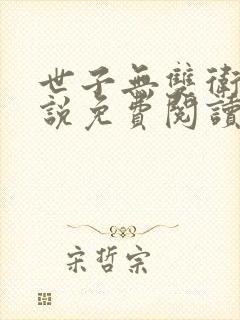 世子無雙衛
說免費閱讀
宋哲宗